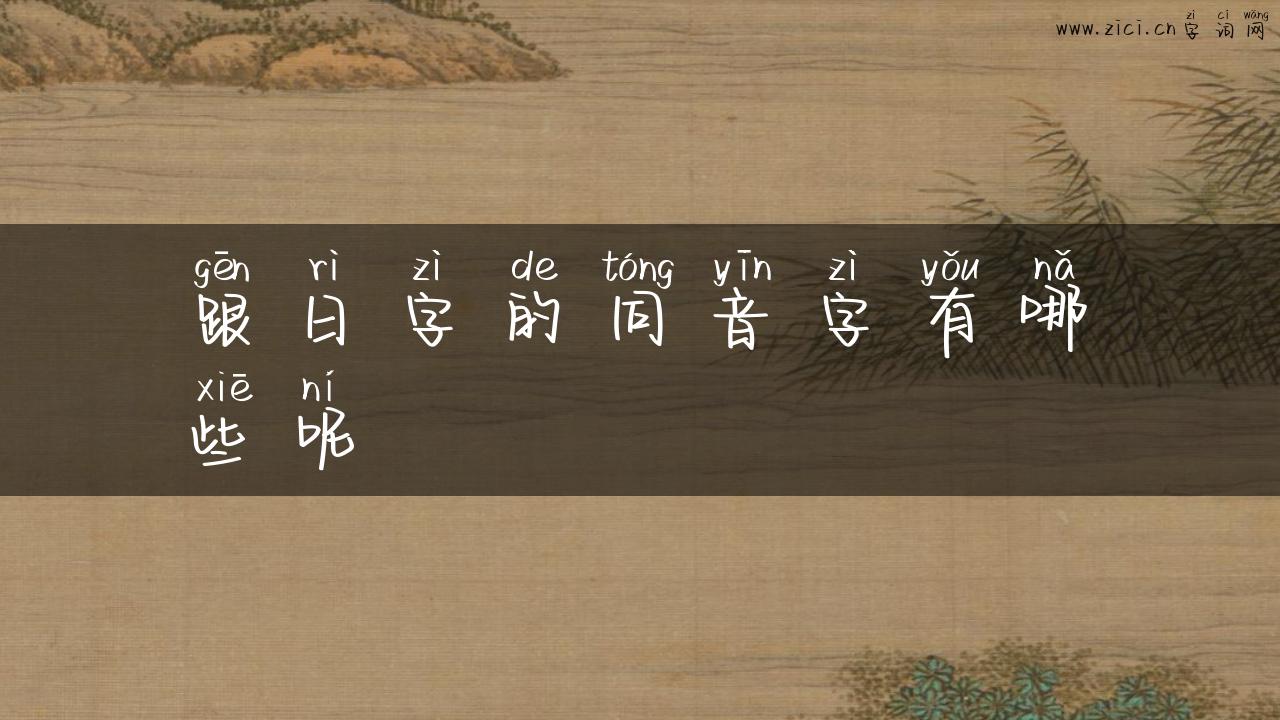 zì cí wǎng
www.zici.cn字词网
gēn rì zì de tóng yīn zì yǒu nǎ
跟日字的同音字有哪
xiē ní
些呢